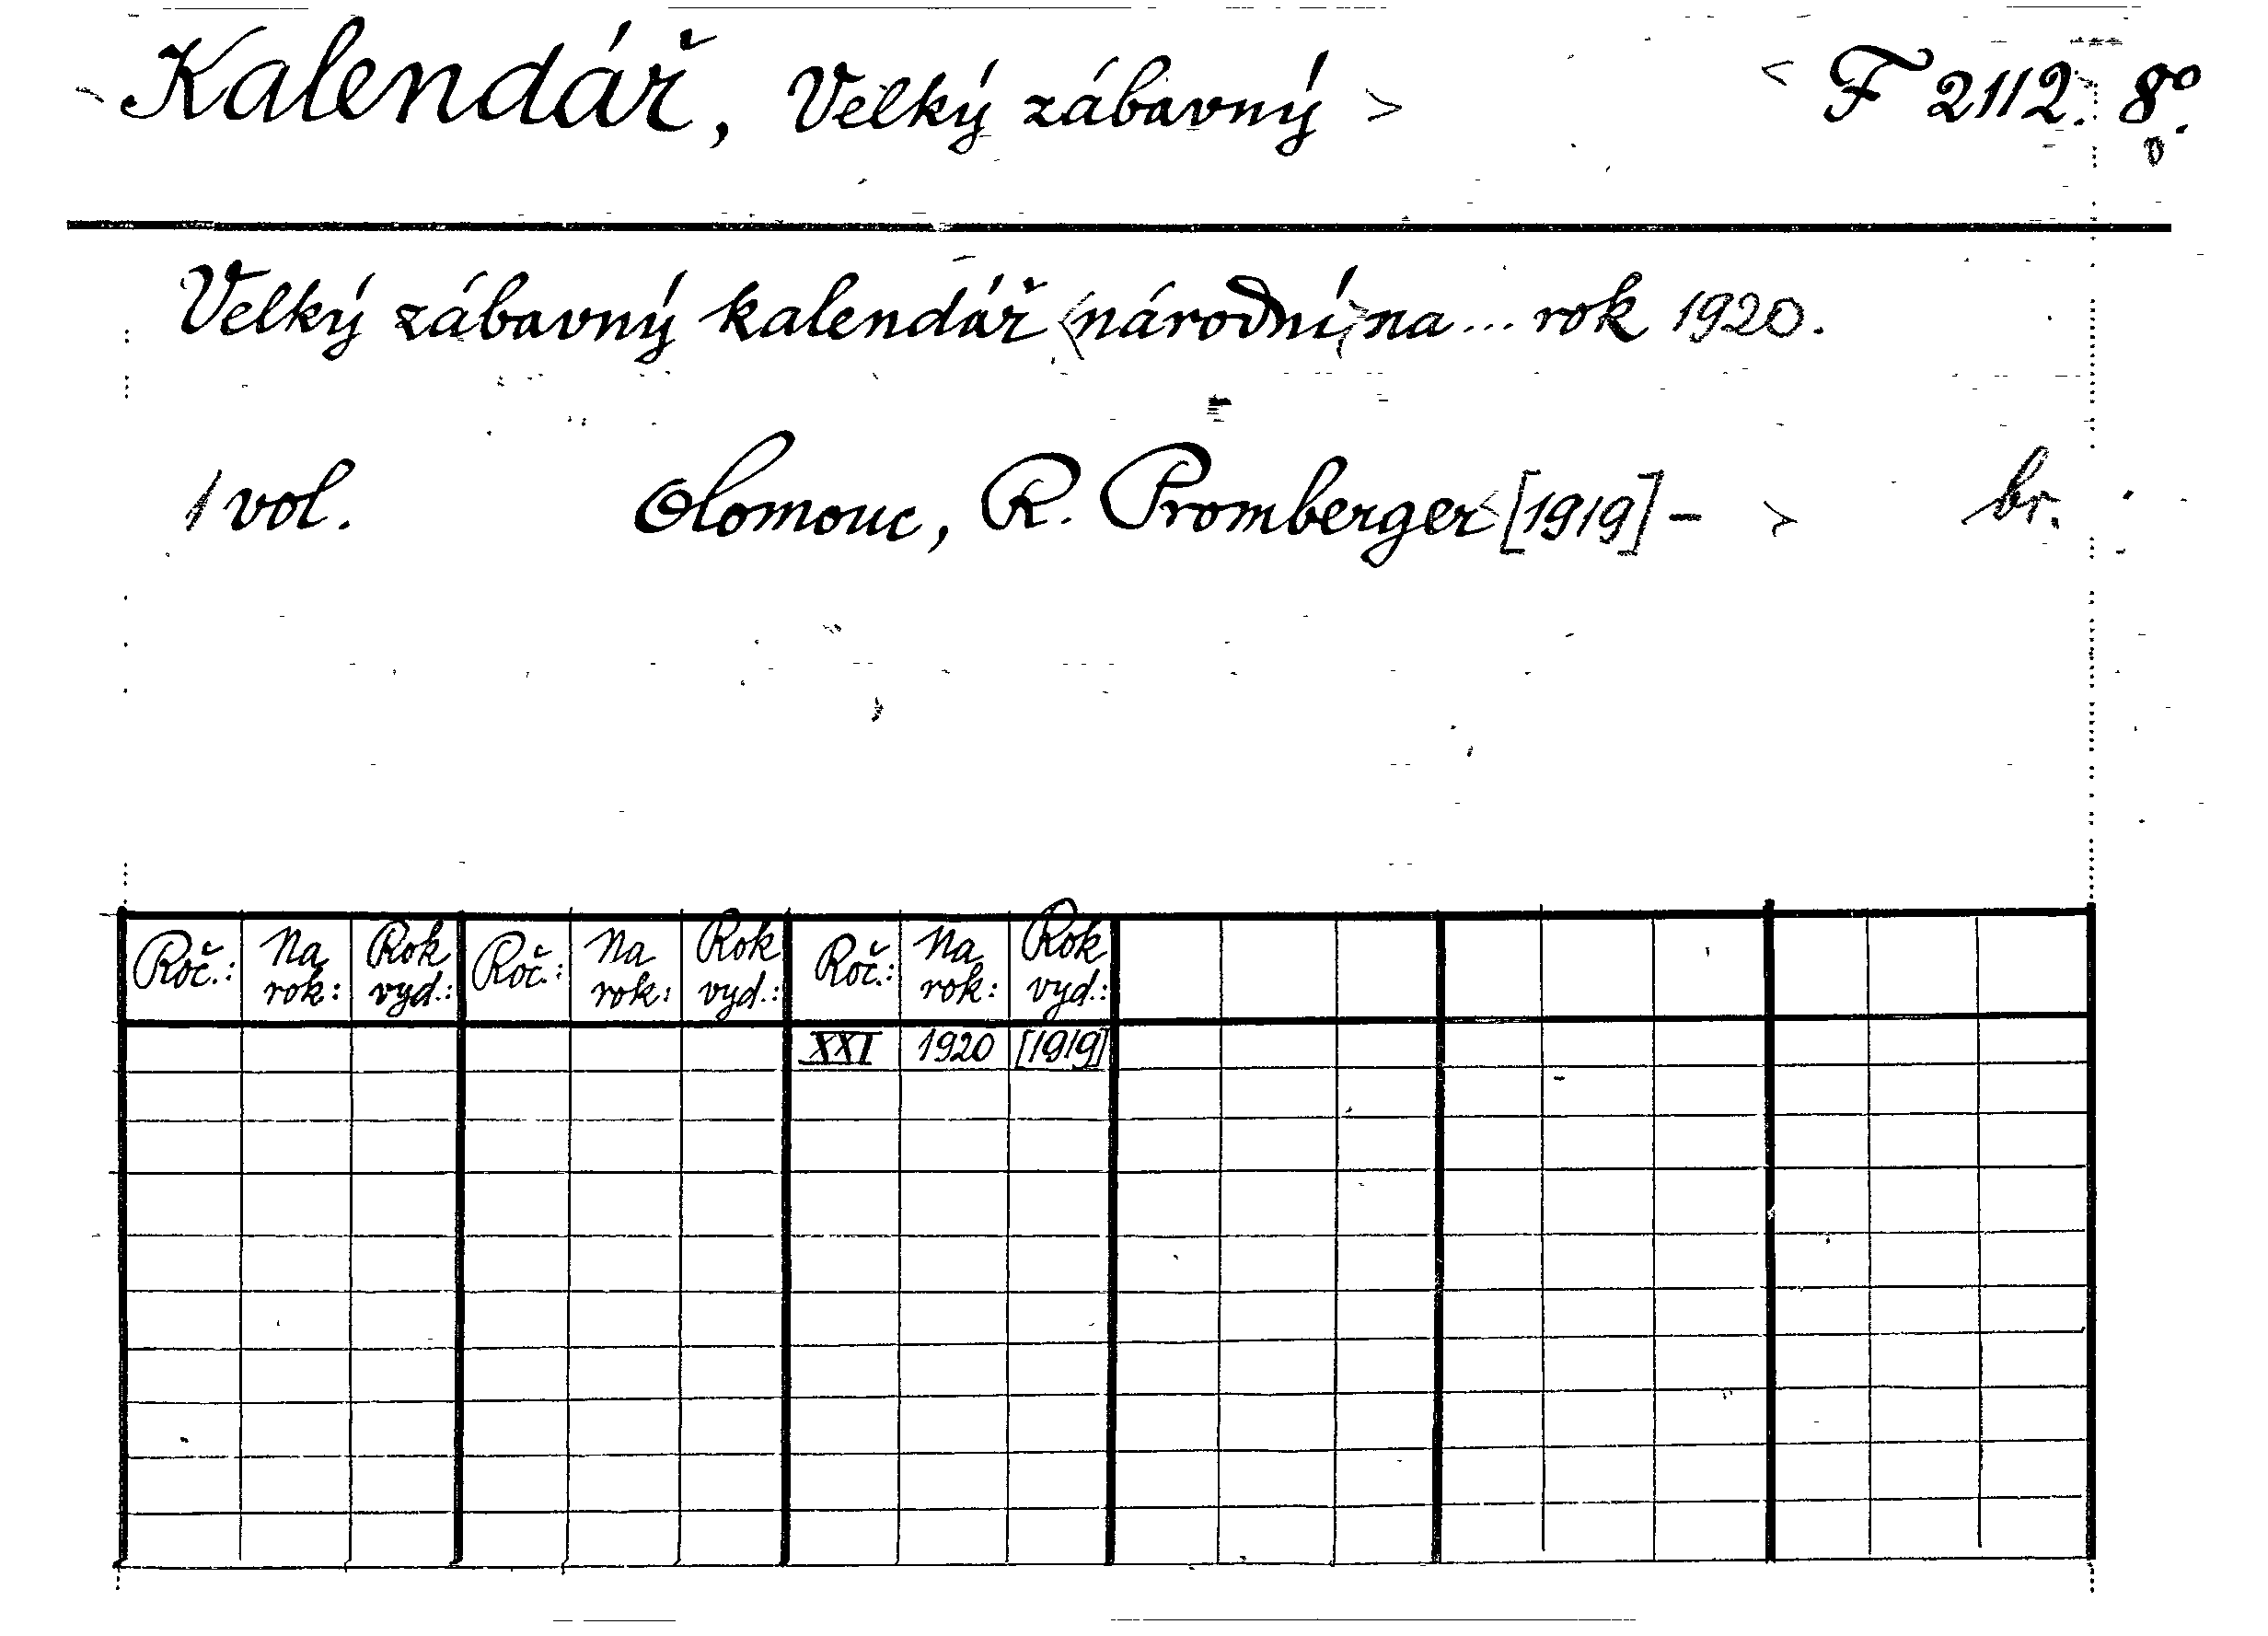 Kalendář, Velký zábavný > < F 2112. 8º.
Velký zábavný kalendář <národní> na ... rok 1920.
1 vol. Olomouc, R. Promberger <[1919] – > br.
Roč.: Na rok: Rok vyd.: Roč.: Na rok: Rok vyd.: Roč.: Na rok: Rok vyd.:
XXI 1920 [1919]